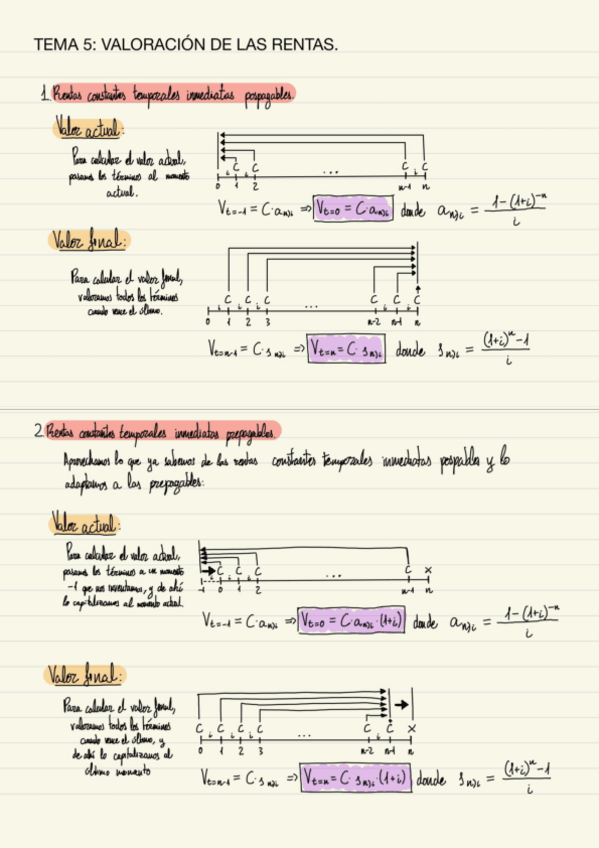 TEMA 5: VALORACIÓN DE LAS RENTAS.
1. Rentas constantes temporales inmediatas pospagables.
Valor actual:
Para calcular el valor actual,
pasamos los términos al momento
actual.
C C ... C C
i i i
0 1 2 n-1 n
Vt=-1 = C·an¬i => Vt=0 = C·an¬i donde an¬i = 1-(1+i)^-n / i
Valor final:
Para calcular el valor final,
valoramos todos los términos
cuando vence el último.
C C C ... C C C
i i i i i
0 1 2 3 n-2 n-1 n
Vt=n-1 = C·sn¬i => Vt=n = C·sn¬i donde sn¬i = (1+i)^n-1 / i
2. Rentas constantes temporales inmediatas prepagables.
Aprovechamos lo que ya sabemos de las rentas constantes temporales inmediatas pospables y lo
adaptamos a las prepagables:
Valor actual:
Para calcular el valor actual,
pasamos los términos a un momento
-1 que nos inventamos, y de ahí
lo capitalizamos al momento actual.
C C C ... C x
i i i
-1 0 1 2 n-1 n
Vt=-1 = C·an¬i => Vt=0 = C·an¬i·(1+i) donde an¬i = 1-(1+i)^-n / i
Valor final:
Para calcular el valor final,
valoramos todos los términos
cuando vence el último, y
de ahí lo capitalizamos al
último momento
C C C C ... C C x
i i i i
0 1 2 3 n-2 n-1 n
Vt=n-1 = C·sn¬i => Vt=n = C·sn¬i·(1+i) donde sn¬i = (1+i)^n-1 / i